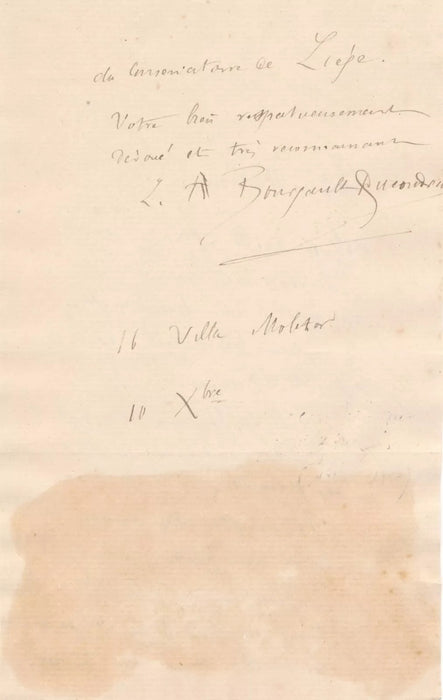 du Conservatoire de Liège.
Votre bien respectueusement
dévoué et très reconnaissant
L. A Bourgault Ducoudray
16 Villa Molitor
10 Xbre